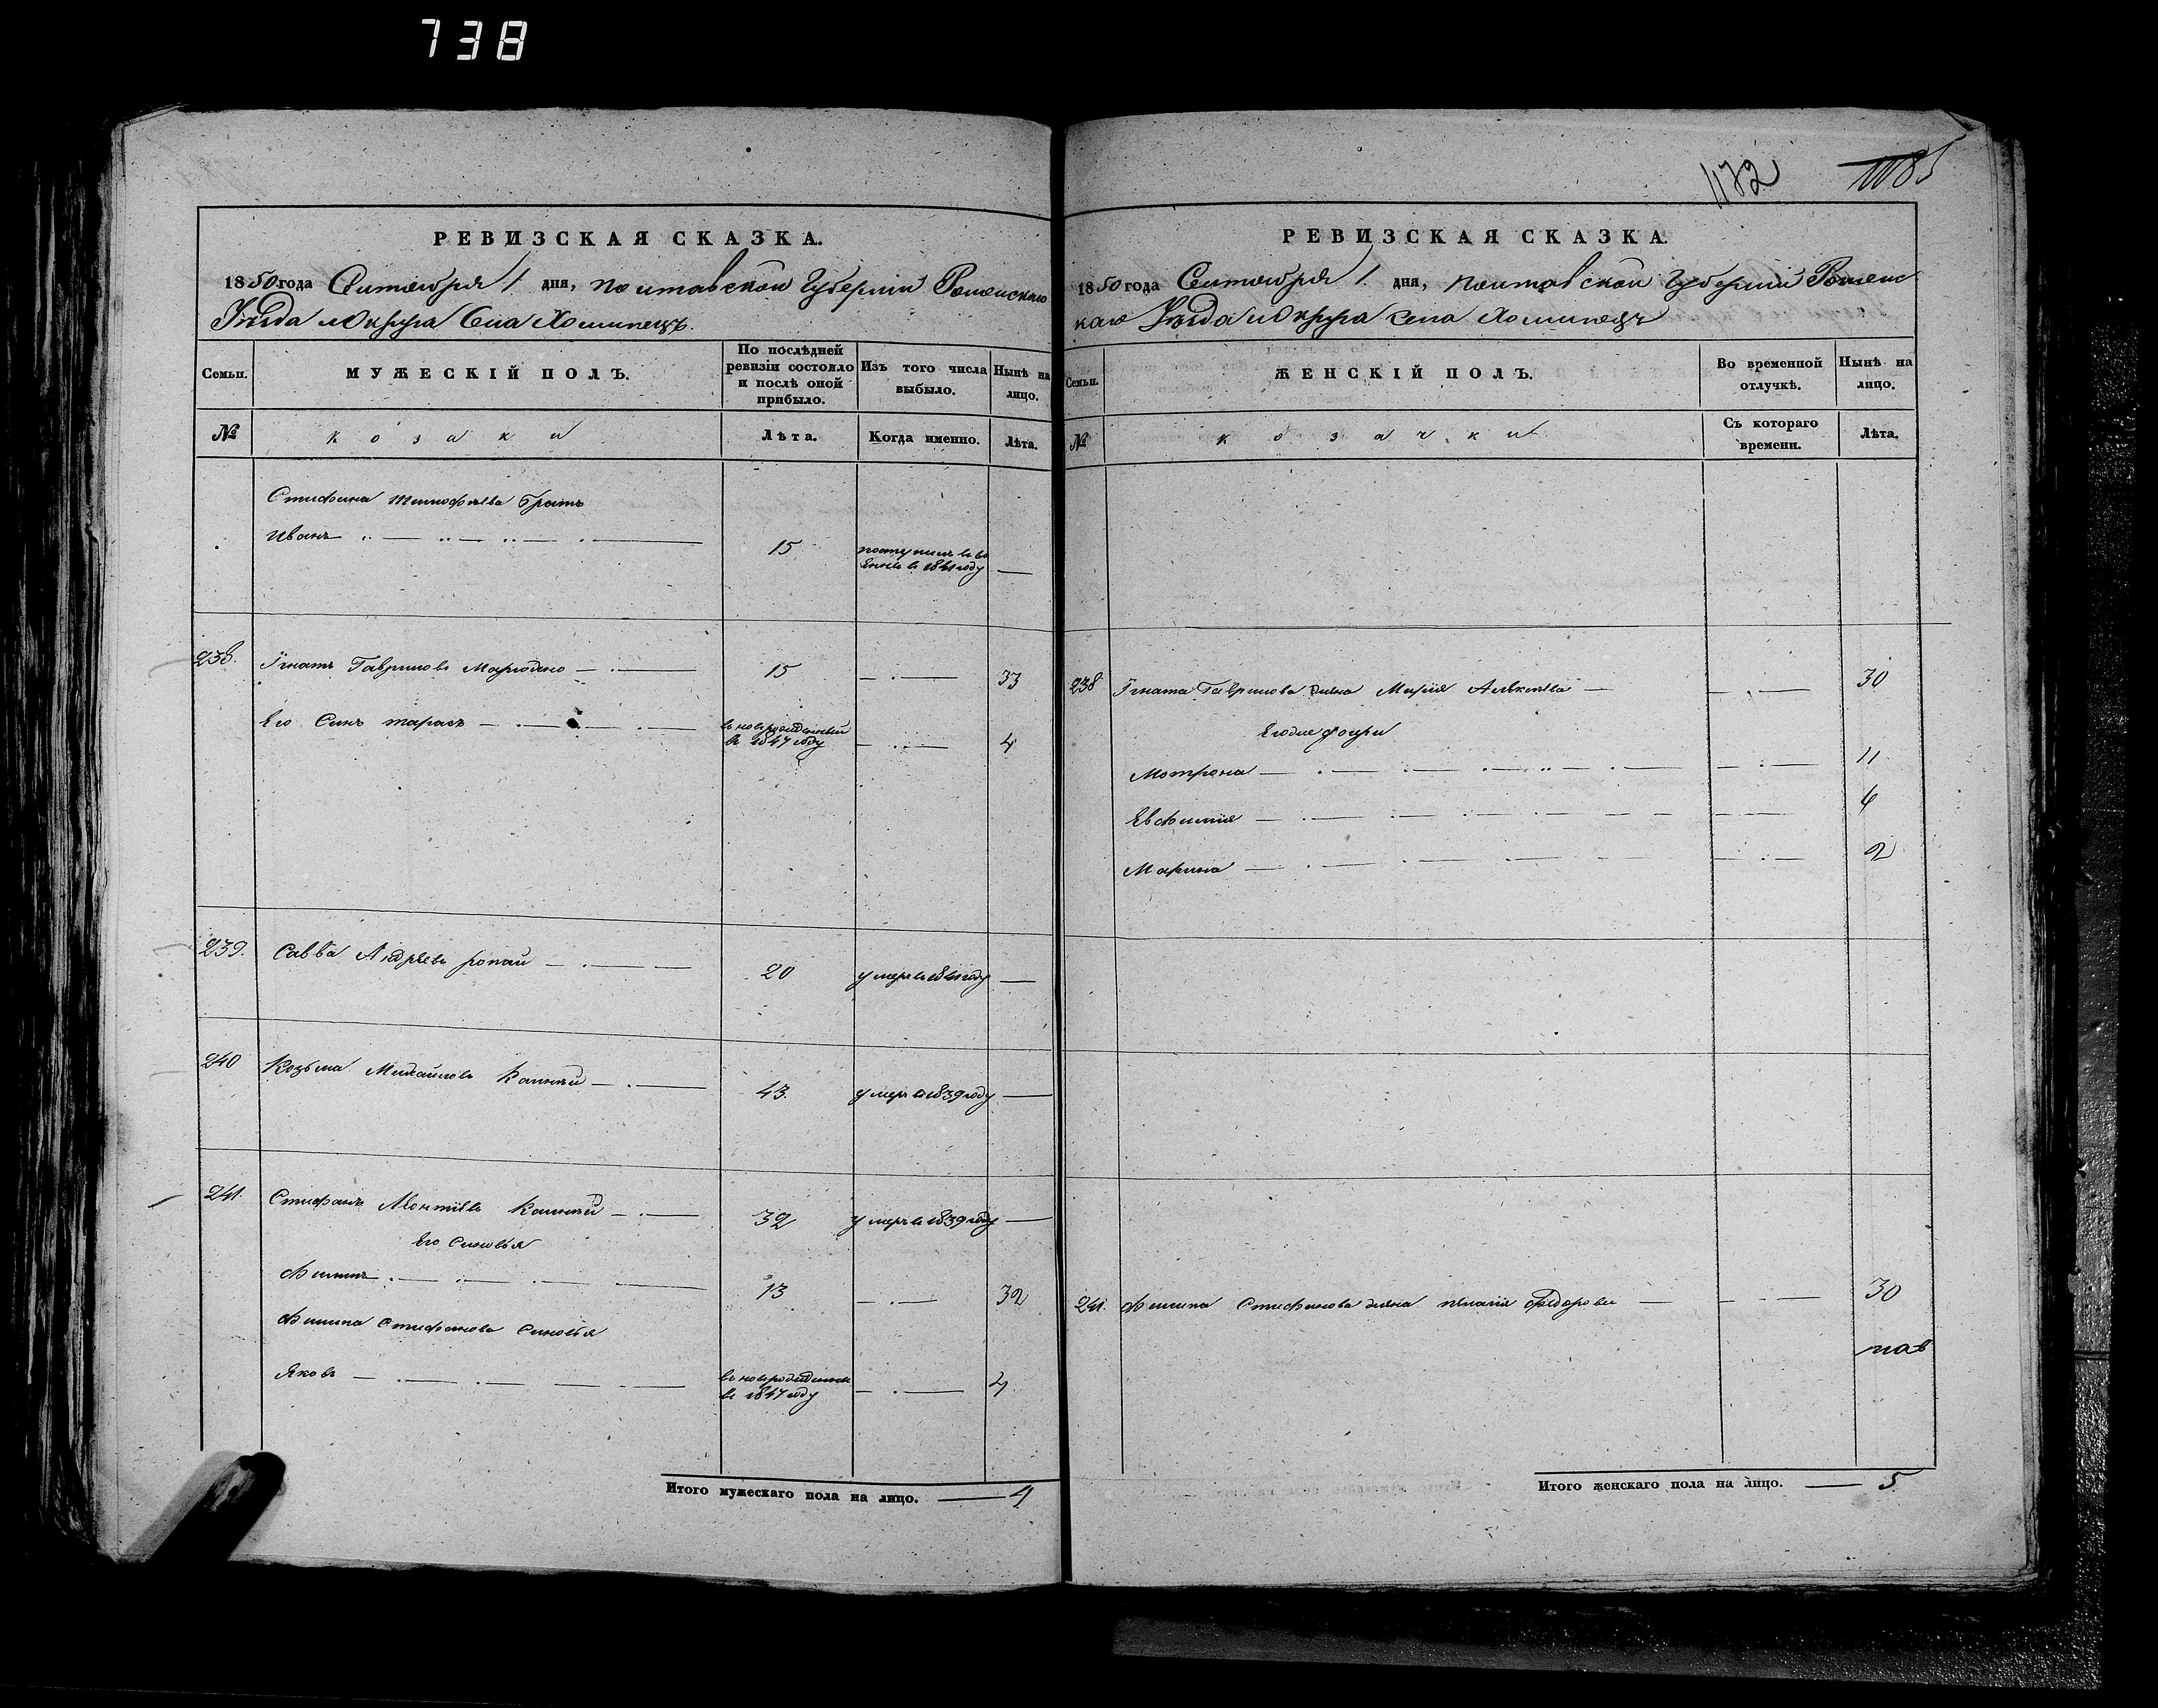 738
1172 1185
РЕВИЗСКАЯ СКАЗКА.
1850 года Сентября 1 дня, Полтавской Губернии Роменскаго
Уезда и Округа Села Хоминецъ.
Семьи.
МУЖЕСКІЙ ПОЛЪ.
По послѣдней ревизіи состояло и послѣ оной прибыло.
Изъ того числа выбыло.
Нынѣ на лицо.
№
козаки
Лѣта.
Когда именно.
Лѣта.
Стефана Тимофѣева Братъ
Иванъ 15 в 1841 году —
238. Игнатъ Гавриловъ 15 33
Его Синъ Тарасъ новорожденный в 1847 году 4
239. Савва Андреевъ Ропай 20 умеръ в 1841 году —
240 Козьма Михайловъ 43. умеръ в 1839 году —
241. Стефанъ Леонтіевъ 32 умеръ в 1839 году —
Его Синовья
Филипъ 13 32
Филипа Стефанова Синовья
Яковъ новорожденный в 1847 году 4
Итого мужескаго пола на лицо. — 4
РЕВИЗСКАЯ СКАЗКА.
1850 года Сентября 1. дня, Полтавской Губерніи Роменс
каго Уезда и Округа Села Хоминецъ
Семьи.
ЖЕНСКІЙ ПОЛЪ.
Во временной отлучкѣ.
Нынѣ на лицо.
№
козачки
Съ котораго времени.
Лѣта.
238 Игната Гаврилова жена Марія Алексѣева 30
Его дочери
Мотрона 11
Евфимія 6
Марина 2
241. Филипа Стефанова жена Пелагія Федорова 30
Итого женскаго пола на лицо. — 5